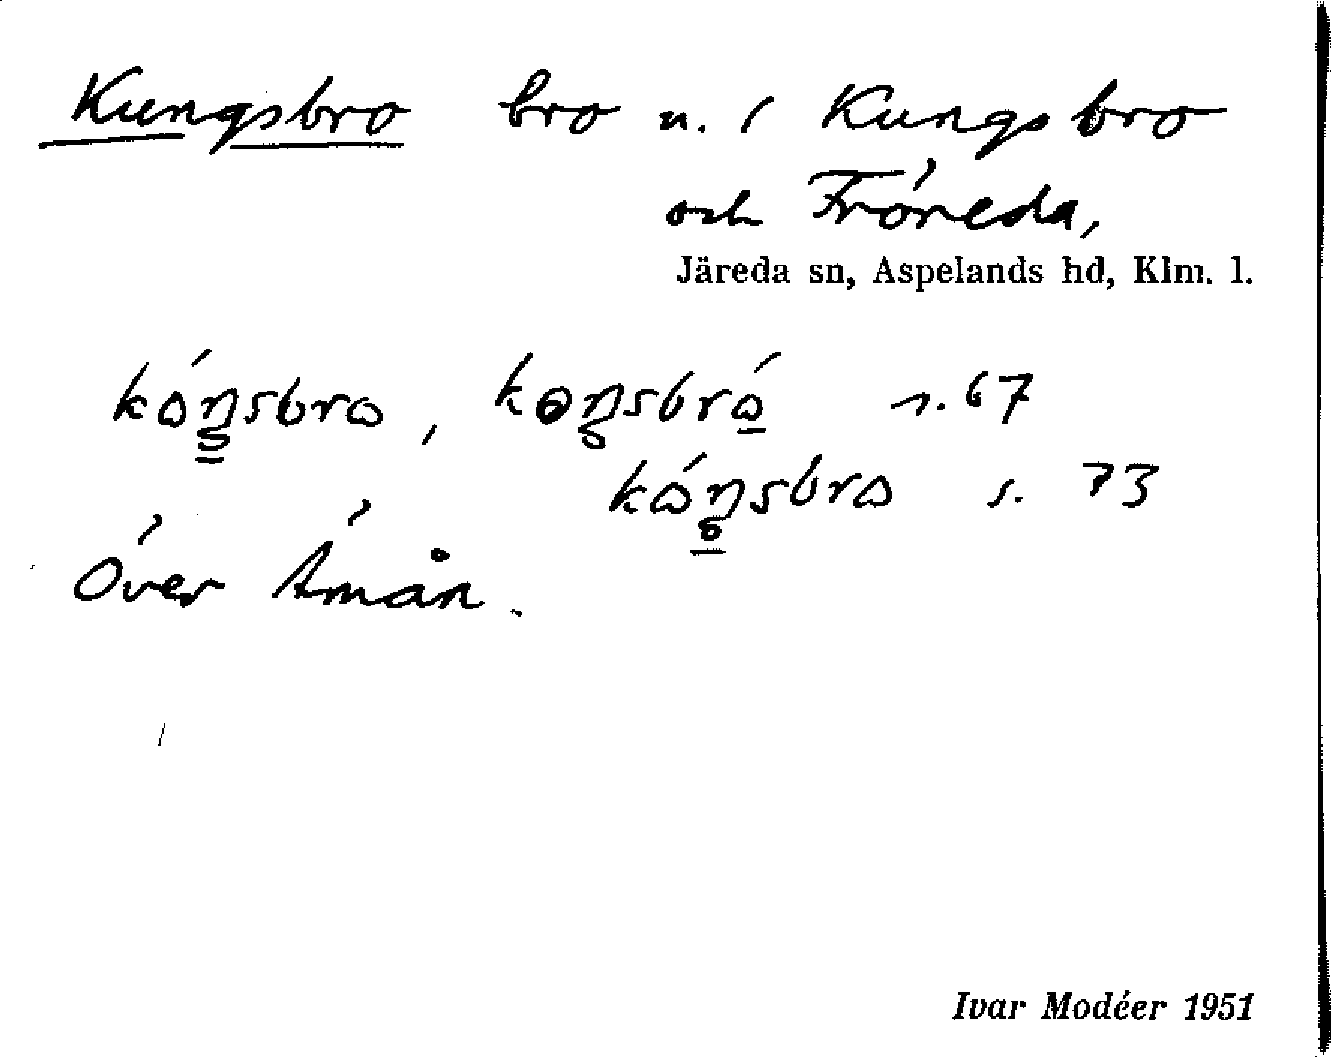 Kungsbro bro n. i Kungsbro
och Fröreda,
Järeda sn, Aspelands hd, Klm. l.
kóŋsbro, koŋsbró s. 67
kóŋsbro s. 73
Över Emån.
Ivar Modéer 1951